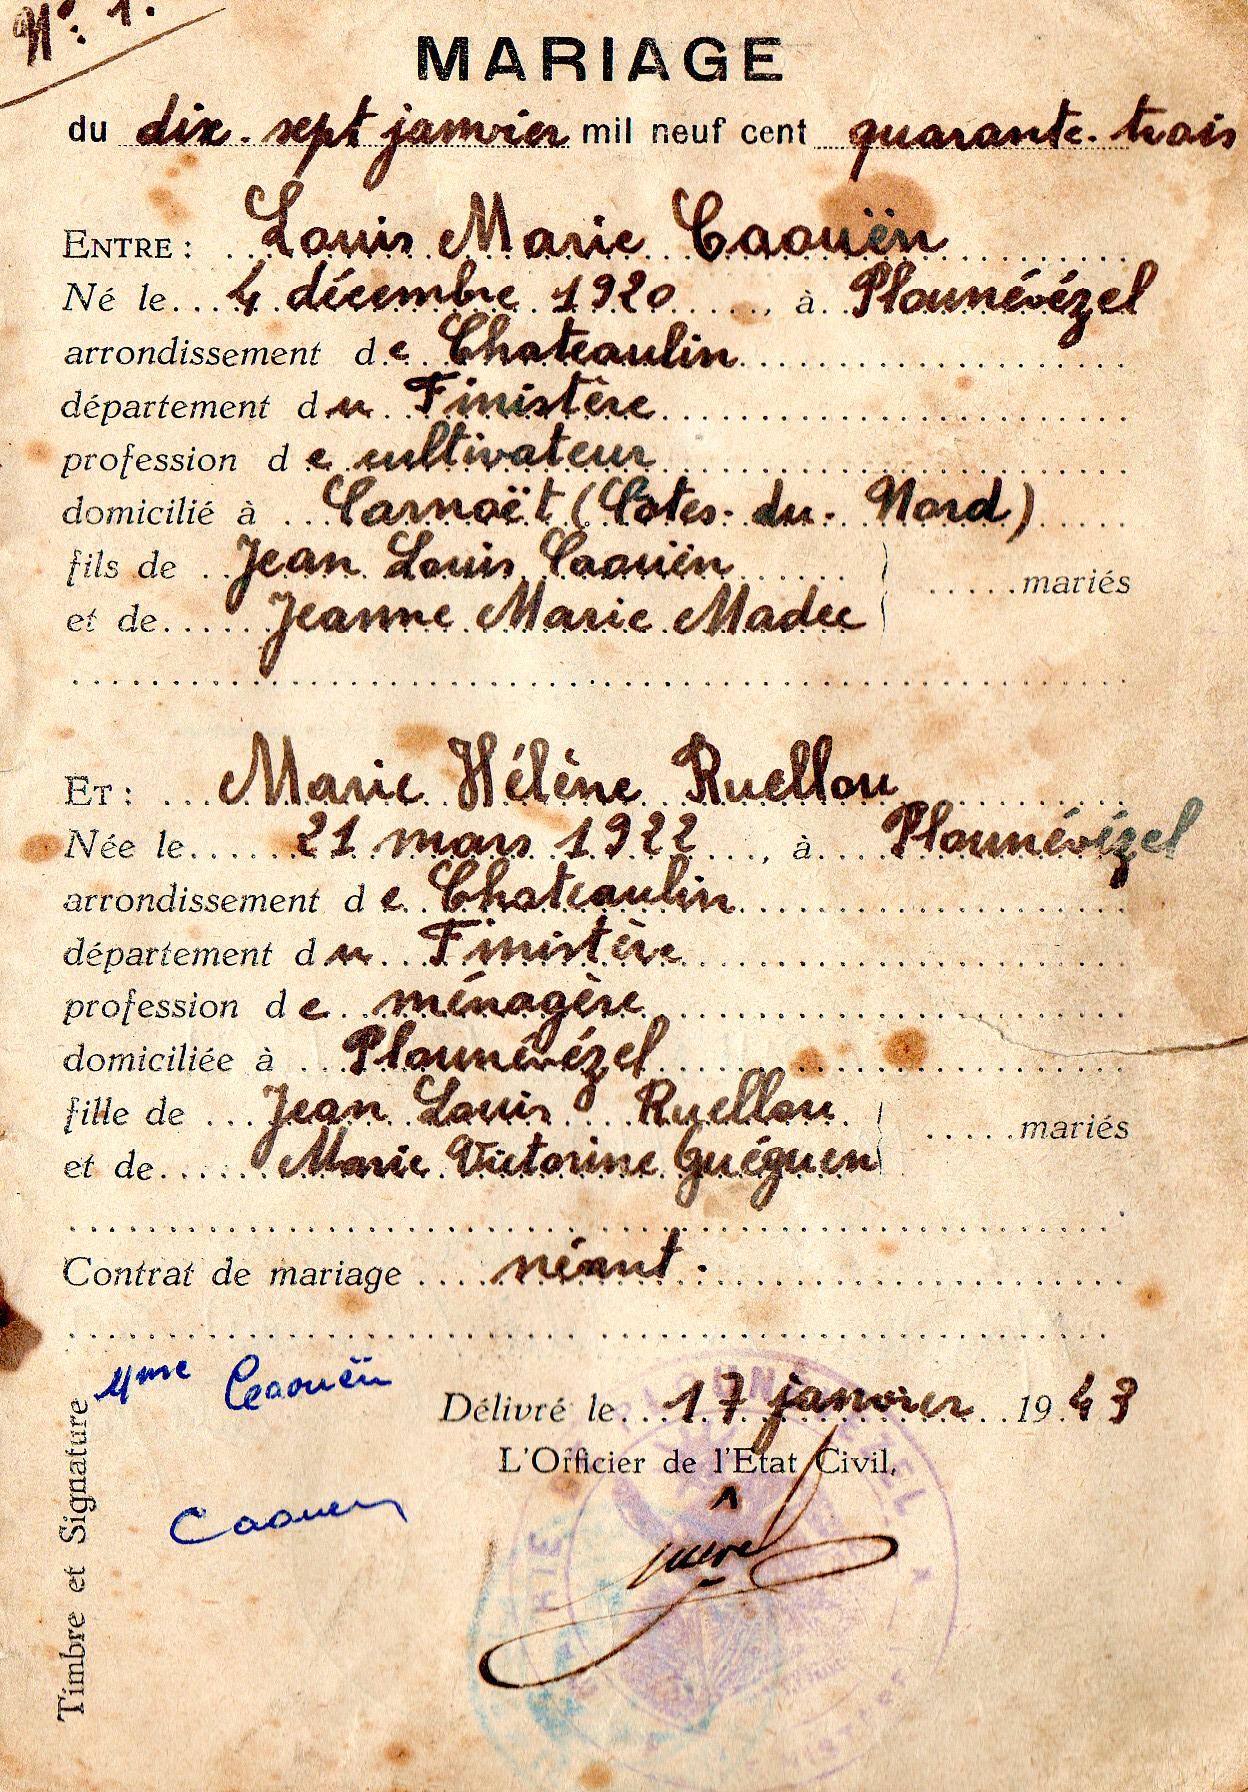 N°: 1.
MARIAGE
du dix-sept janvier mil neuf cent quarante-trois
ENTRE : Louis Marie Caouën
Né le 4 décembre 1920, à Plounévézel
arrondissement de Chateaulin
département du Finistère
profession de cultivateur
domicilié à Carnoët (Côtes-du-Nord)
fils de Jean Louis Caouën
mariés
et de Jeanne Marie Madec
ET : Marie Hélène Ruellou
Née le 21 mars 1922, à Plounévézel
arrondissement de Chateaulin
département du Finistère
profession de ménagère
domiciliée à Plounévézel
fille de Jean Louis Ruellou
mariés
et de Marie Victorine Guéguen
Contrat de mariage néant.
Mme Caouën
Délivré le 17 janvier 1943
L'Officier de l'Etat Civil,
Caouen
Timbre et Signature